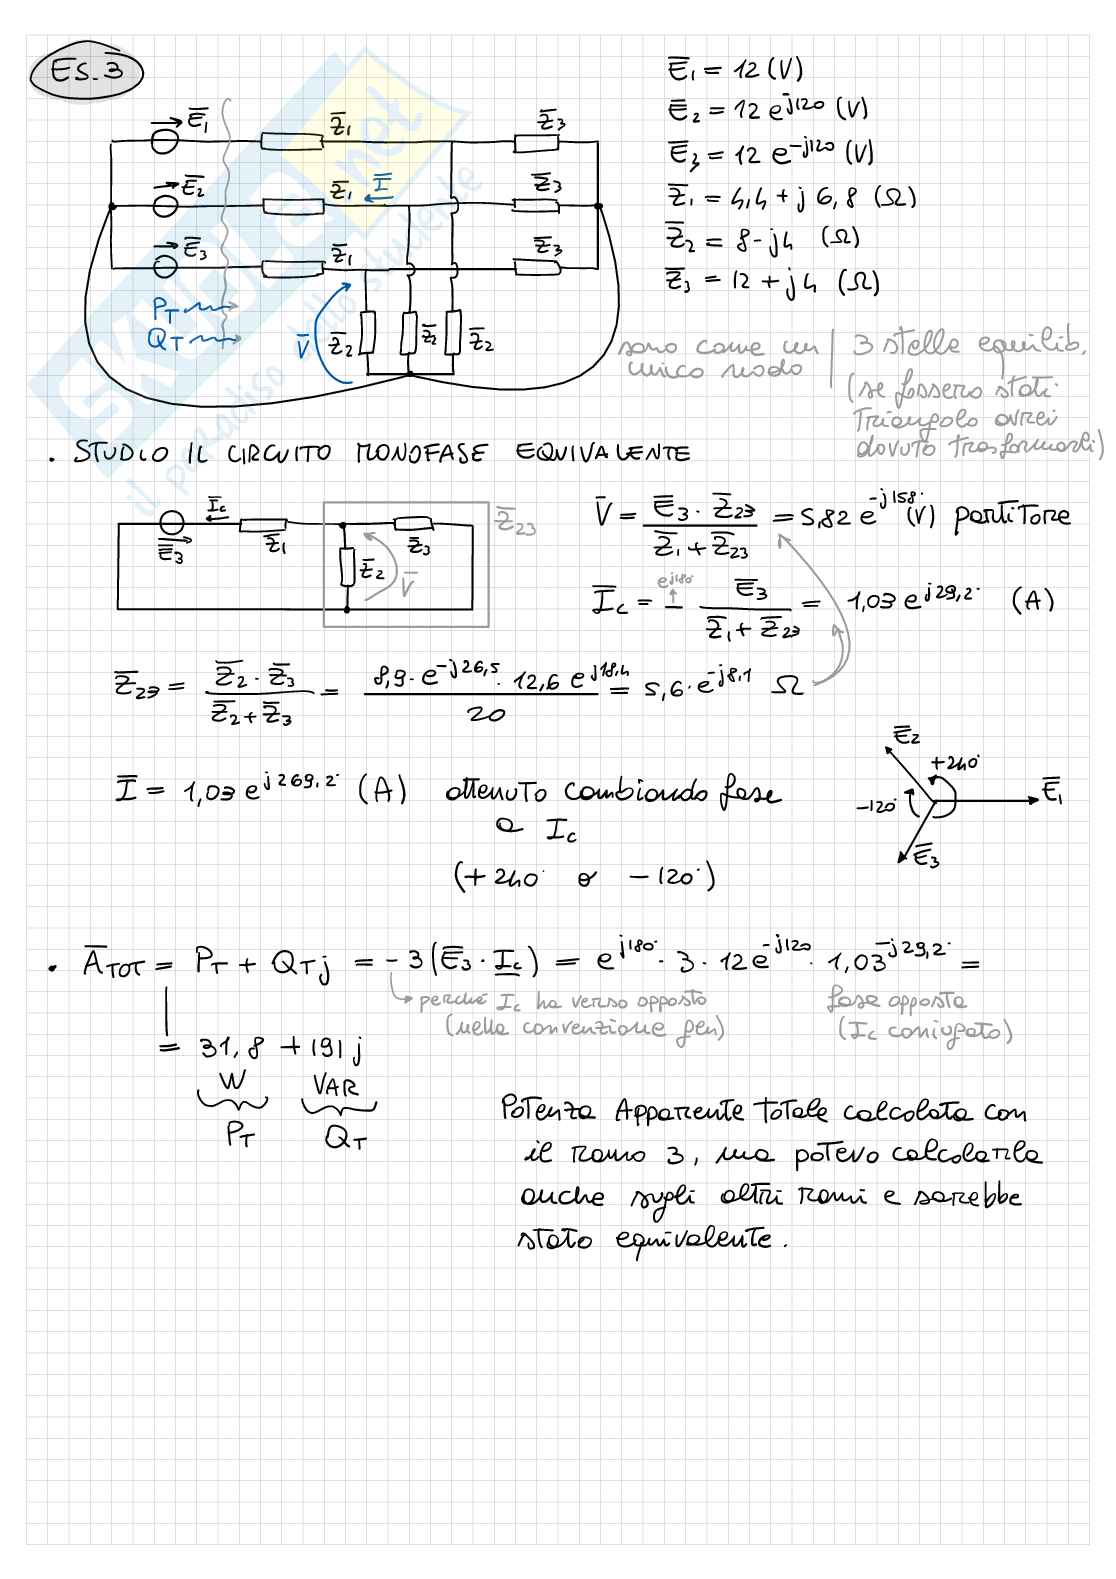 Es. 3
E̅₁ = 12 (V)
E̅₂ = 12 e^j120 (V)
E̅₃ = 12 e^-j120 (V)
Z̅₁ = 4,4 + j 6,8 (Ω)
Z̅₂ = 8 - j4 (Ω)
Z̅₃ = 12 + j4 (Ω)
E̅₁ Z̅₁ Z̅₃
E̅₂ Z̅₁ I̅ Z̅₃
E̅₃ Z̅₁ Z̅₃
P_T
Q_T V̅ Z̅₂ Z̅₂ Z̅₂
sono come un
unico nodo
3 stelle equilib.
(se fossero stati
triangolo avrei
dovuto trasformarli)
SKUOLA.net
il paradiso dello studente
. STUDIO IL CIRCUITO MONOFASE EQUIVALENTE
I̅c Z̅₂₃
E̅₃ Z̅₁ Z̅₂ V̅ Z̅₃
V̅ = E̅₃ · Z̅₂₃ / Z̅₁ + Z̅₂₃ = 5,82 e^-j158° (V) partitore
e^j180°
I̅c = - E̅₃ / Z̅₁ + Z̅₂₃ = 1,03 e^j29,2° (A)
Z̅₂₃ = Z̅₂ · Z̅₃ / Z̅₂ + Z̅₃ = 8,9 · e^-j26,5 · 12,6 e^j18,4 / 20 = 5,6 · e^-j8,1 Ω
I̅ = 1,03 e^j269,2° (A) ottenuto cambiando fase
a Ic
(+240° o -120°)
E̅₂
+240°
E̅₁
-120°
E̅₃
. A̅_TOT = P_T + Q_T j = - 3 (E̅₃ · I̲c) = e^j180° · 3 · 12 e^-j120 · 1,03^-j29,2° =
perché Ic ha verso opposto
(nella convenzione gen)
fase opposta
(Ic coniugato)
= 31,8 + 191 j
W VAR
P_T Q_T
Potenza Apparente totale calcolata con
il ramo 3, ma potevo calcolarla
anche sugli altri rami e sarebbe
stato equivalente.